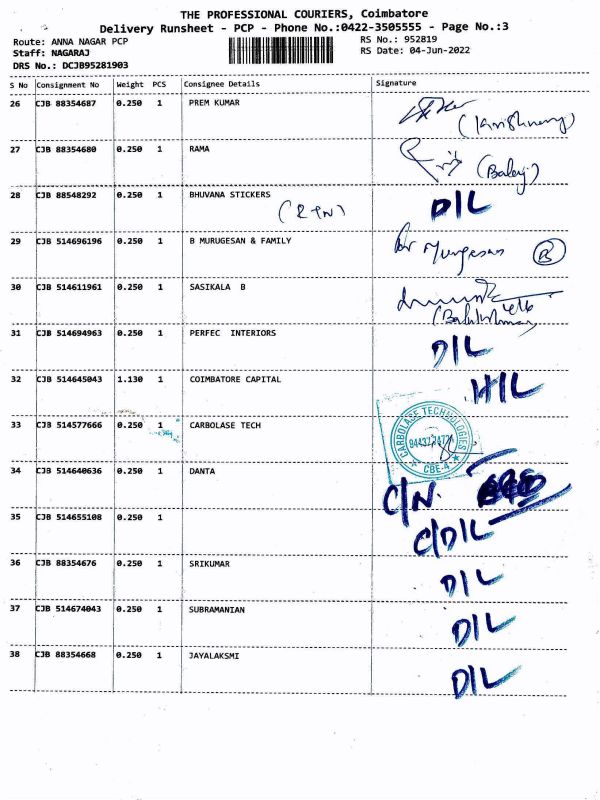 THE PROFESSIONAL COURIERS, Coimbatore
Delivery Runsheet - PCP - Phone No.:0422-3505555 - Page No.:3
Route: ANNA NAGAR PCP RS No.: 952819
Staff: NAGARAJ RS Date: 04-Jun-2022
DRS No.: DCJB95281903
S No Consignment No Weight PCS Consignee Details Signature
26 CJB 88354687 0.250 1 PREM KUMAR
27 CJB 88354680 0.250 1 RAMA
28 CJB 88548292 0.250 1 BHUVANA STICKERS D/L
29 CJB 514696196 0.250 1 B MURUGESAN & FAMILY Murugesan B
30 CJB 514611961 0.250 1 SASIKALA B
31 CJB 514694963 0.250 1 PERFEC INTERIORS D/L
32 CJB 514645043 1.130 1 COIMBATORE CAPITAL H/L
33 CJB 514577666 0.250 1 CARBOLASE TECH CARBOLASE TECHNOLOGIES CBE-4
34 CJB 514640636 0.250 1 DANTA C/N.
35 CJB 514655108 0.250 1 C/D/L
36 CJB 88354676 0.250 1 SRIKUMAR D/L
37 CJB 514674043 0.250 1 SUBRAMANIAN D/L
38 CJB 88354668 0.250 1 JAYALAKSMI D/L